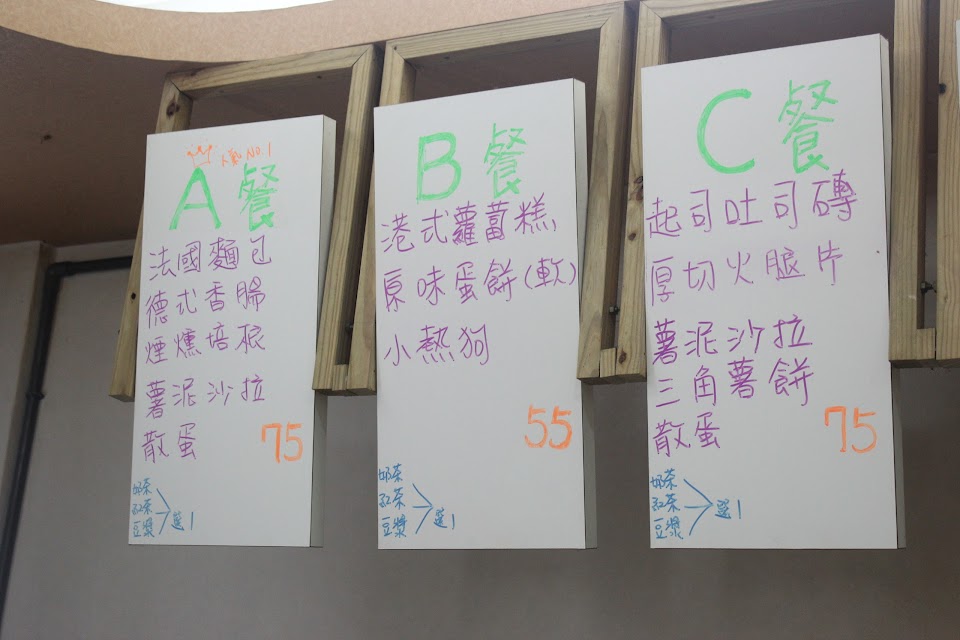 人氣No.1
A餐
法國麵包
德式香腸
煙燻培根
薯泥沙拉
散蛋
75
奶茶
紅茶
豆漿
選1
B餐
港式蘿蔔糕
原味蛋餅(軟)
小熱狗
55
奶茶
紅茶
豆漿
選1
C餐
起司吐司磚
厚切火腿片
薯泥沙拉
三角薯餅
散蛋
75
奶茶
紅茶
豆漿
選1